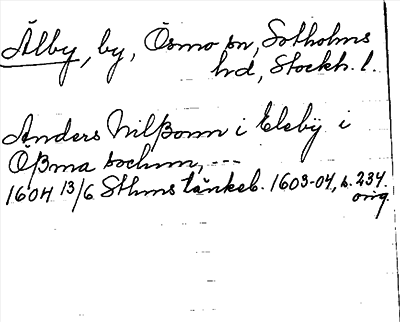 Älby, by, Ösmo sn, Sotholms
hd, Stockh. l.
Anders Nilßonn i Eleby i
Ößma sochnn, ---
1604 13/6 Sthms tänkeb. 1603-04, s. 234.
orig.